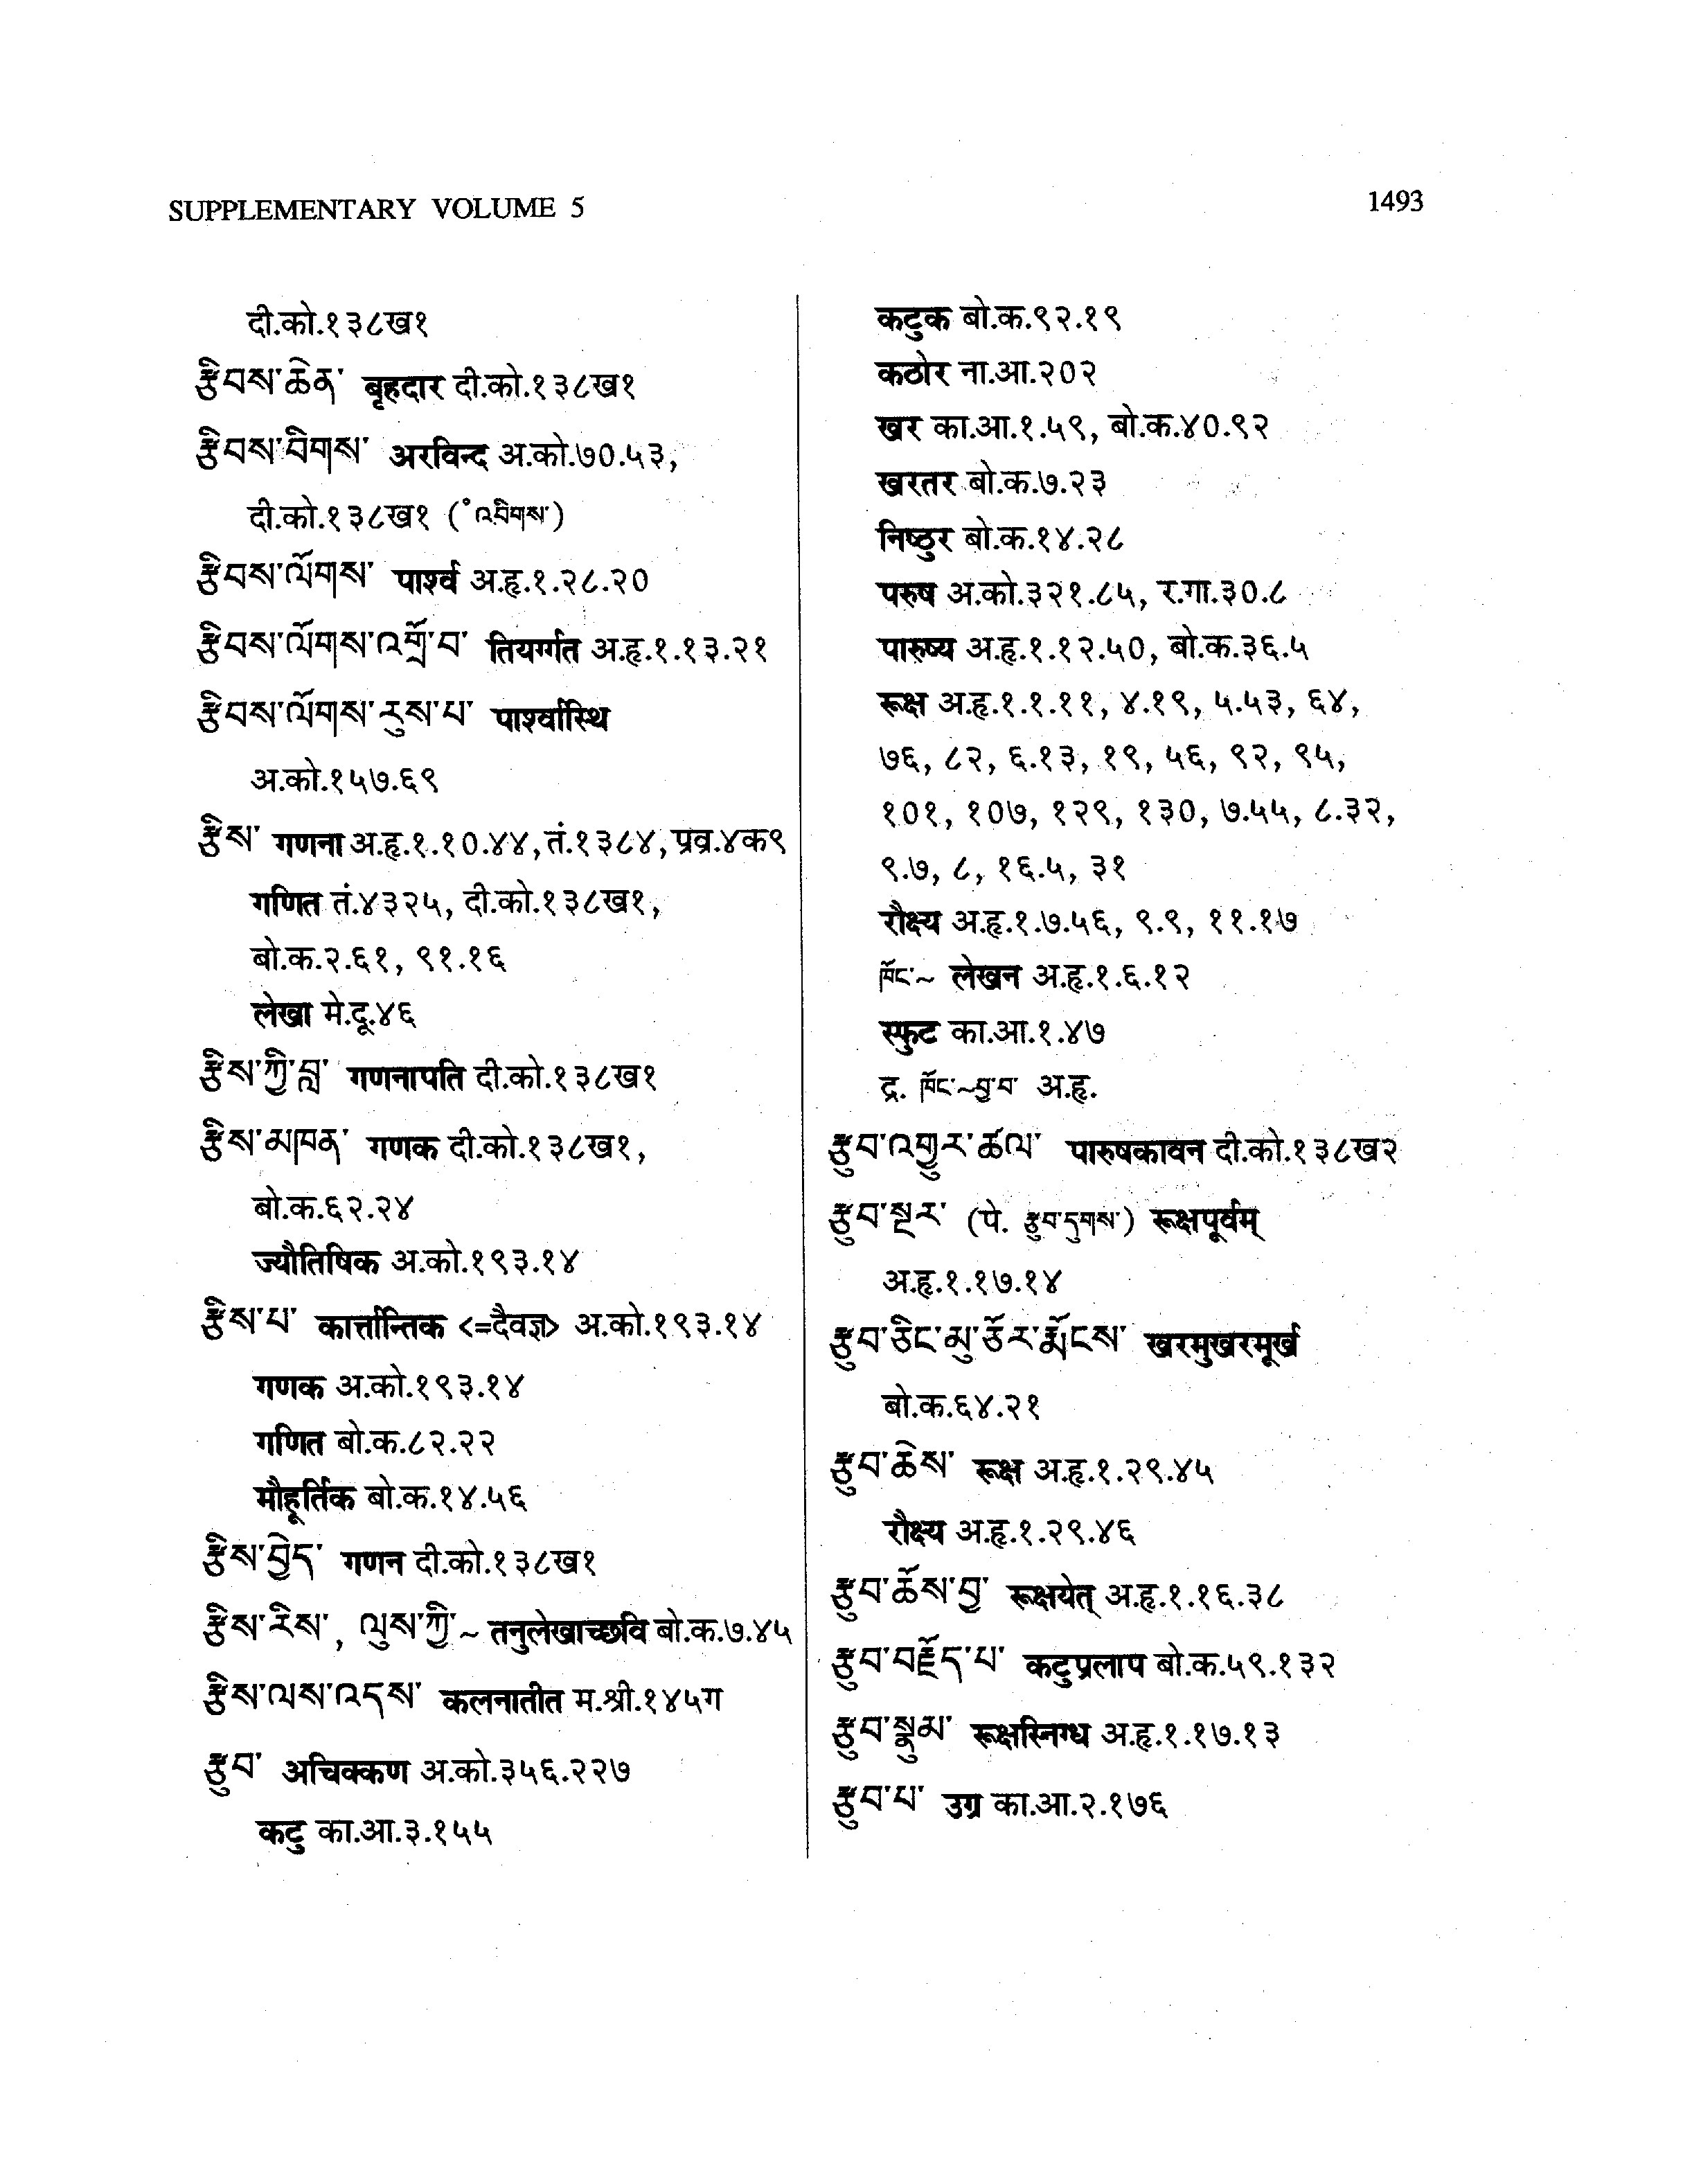 SUPPLEMENTARY VOLUME 5
1493
दी.को.१३८ख१
རྩིབས་ཆེན་ बृहदार दी.को.१३८ख१
རྩིབས་བིགས་ अरविन्द अ.को.७०.५३,
दी.को.१३८ख१ (°འབིགས་)
རྩིབས་ལོགས་ पार्श्व अ.हृ.१.२८.२०
རྩིབས་ལོགས་འགྲོ་བ་ तियर्ग्गत अ.हृ.१.१३.२१
རྩིབས་ལོགས་རུས་པ་ पार्श्वास्थि
अ.को.१५७.६९
རྩིས་ गणना अ.हृ.१.१०.४४, तं.१३८४, प्रव्र.४क९
गणित तं.४३२५, दी.को.१३८ख१,
बो.क.२.६१, ९१.१६
लेखा मे.दू.४६
རྩིས་ཀྱི་བླ་ गणनापति दी.को.१३८ख१
རྩིས་མཁན་ गणक दी.को.१३८ख१,
बो.क.६२.२४
ज्यौतिषिक अ.को.१९३.१४
རྩིས་པ་ कार्त्तान्तिक <=दैवज्ञ> अ.को.१९३.१४
गणक अ.को.१९३.१४
गणित बो.क.८२.२२
मौहूर्तिक बो.क.१४.५६
རྩིས་བྱེད་ गणन दी.को.१३८ख१
རྩིས་རིས་, ལུས་ཀྱི་~ तनुलेखाच्छवि बो.क.७.४५
རྩིས་ལས་འདས་ कलनातीत म.श्री.१४५ग
རྩུབ་ अचिक्कण अ.को.३५६.२२७
कटु का.आ.३.१५५
कटुक बो.क.९२.१९
कठोर ना.आ.२०२
खर का.आ.१.५९, बो.क.४०.९२
खरतर बो.क.७.२३
निष्ठुर बो.क.१४.२८
परुष अ.को.३२१.८५, र.गा.३०.८
पारुष्य अ.हृ.१.१२.५०, बो.क.३६.५
रूक्ष अ.हृ.१.१.११, ४.१९, ५.५३, ६४,
७६, ८२, ६.१३, १९, ५६, ९२, ९५,
१०१, १०७, १२९, १३०, ७.५५, ८.३२,
९.७, ८, १६.५, ३१
रौक्ष्य अ.हृ.१.७.५६, ९.९, ११.१७
ཁོང་~ लेखन अ.हृ.१.६.१२
स्फुट का.आ.१.४७
द्र. ཁོང་~བྱ་བ་ अ.हृ.
རྩུབ་འགྱུར་ཚལ་ पारुषकावन दी.को.१३८ख२
རྩུབ་སྔར་ (पे. རྩུབ་དུགས་) रूक्षपूर्वम्
अ.हृ.१.१७.१४
རྩུབ་ཅིང་མུ་ཅོར་རྨོངས་ खरमुखरमूर्ख
बो.क.६४.२१
རྩུབ་ཆེས་ रूक्ष अ.हृ.१.२९.४५
रौक्ष्य अ.हृ.१.२९.४६
རྩུབ་ཆོས་བྱ་ रूक्षयेत् अ.हृ.१.१६.३८
རྩུབ་བརྗོད་པ་ कटुप्रलाप बो.क.५९.१३२
རྩུབ་སྣུམ་ रूक्षस्निग्ध अ.हृ.१.१७.१३
རྩུབ་པ་ उग्र का.आ.२.१७६